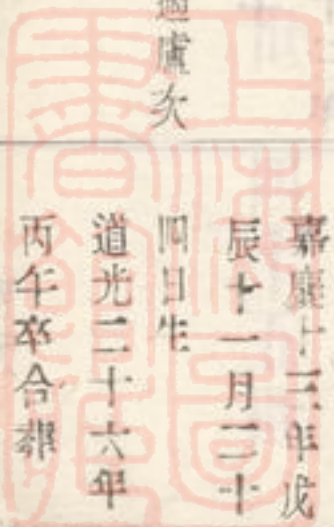 適盧次
嘉慶十三年戊
辰十一月二十
四日生
道光二十六年
丙午卒合葬